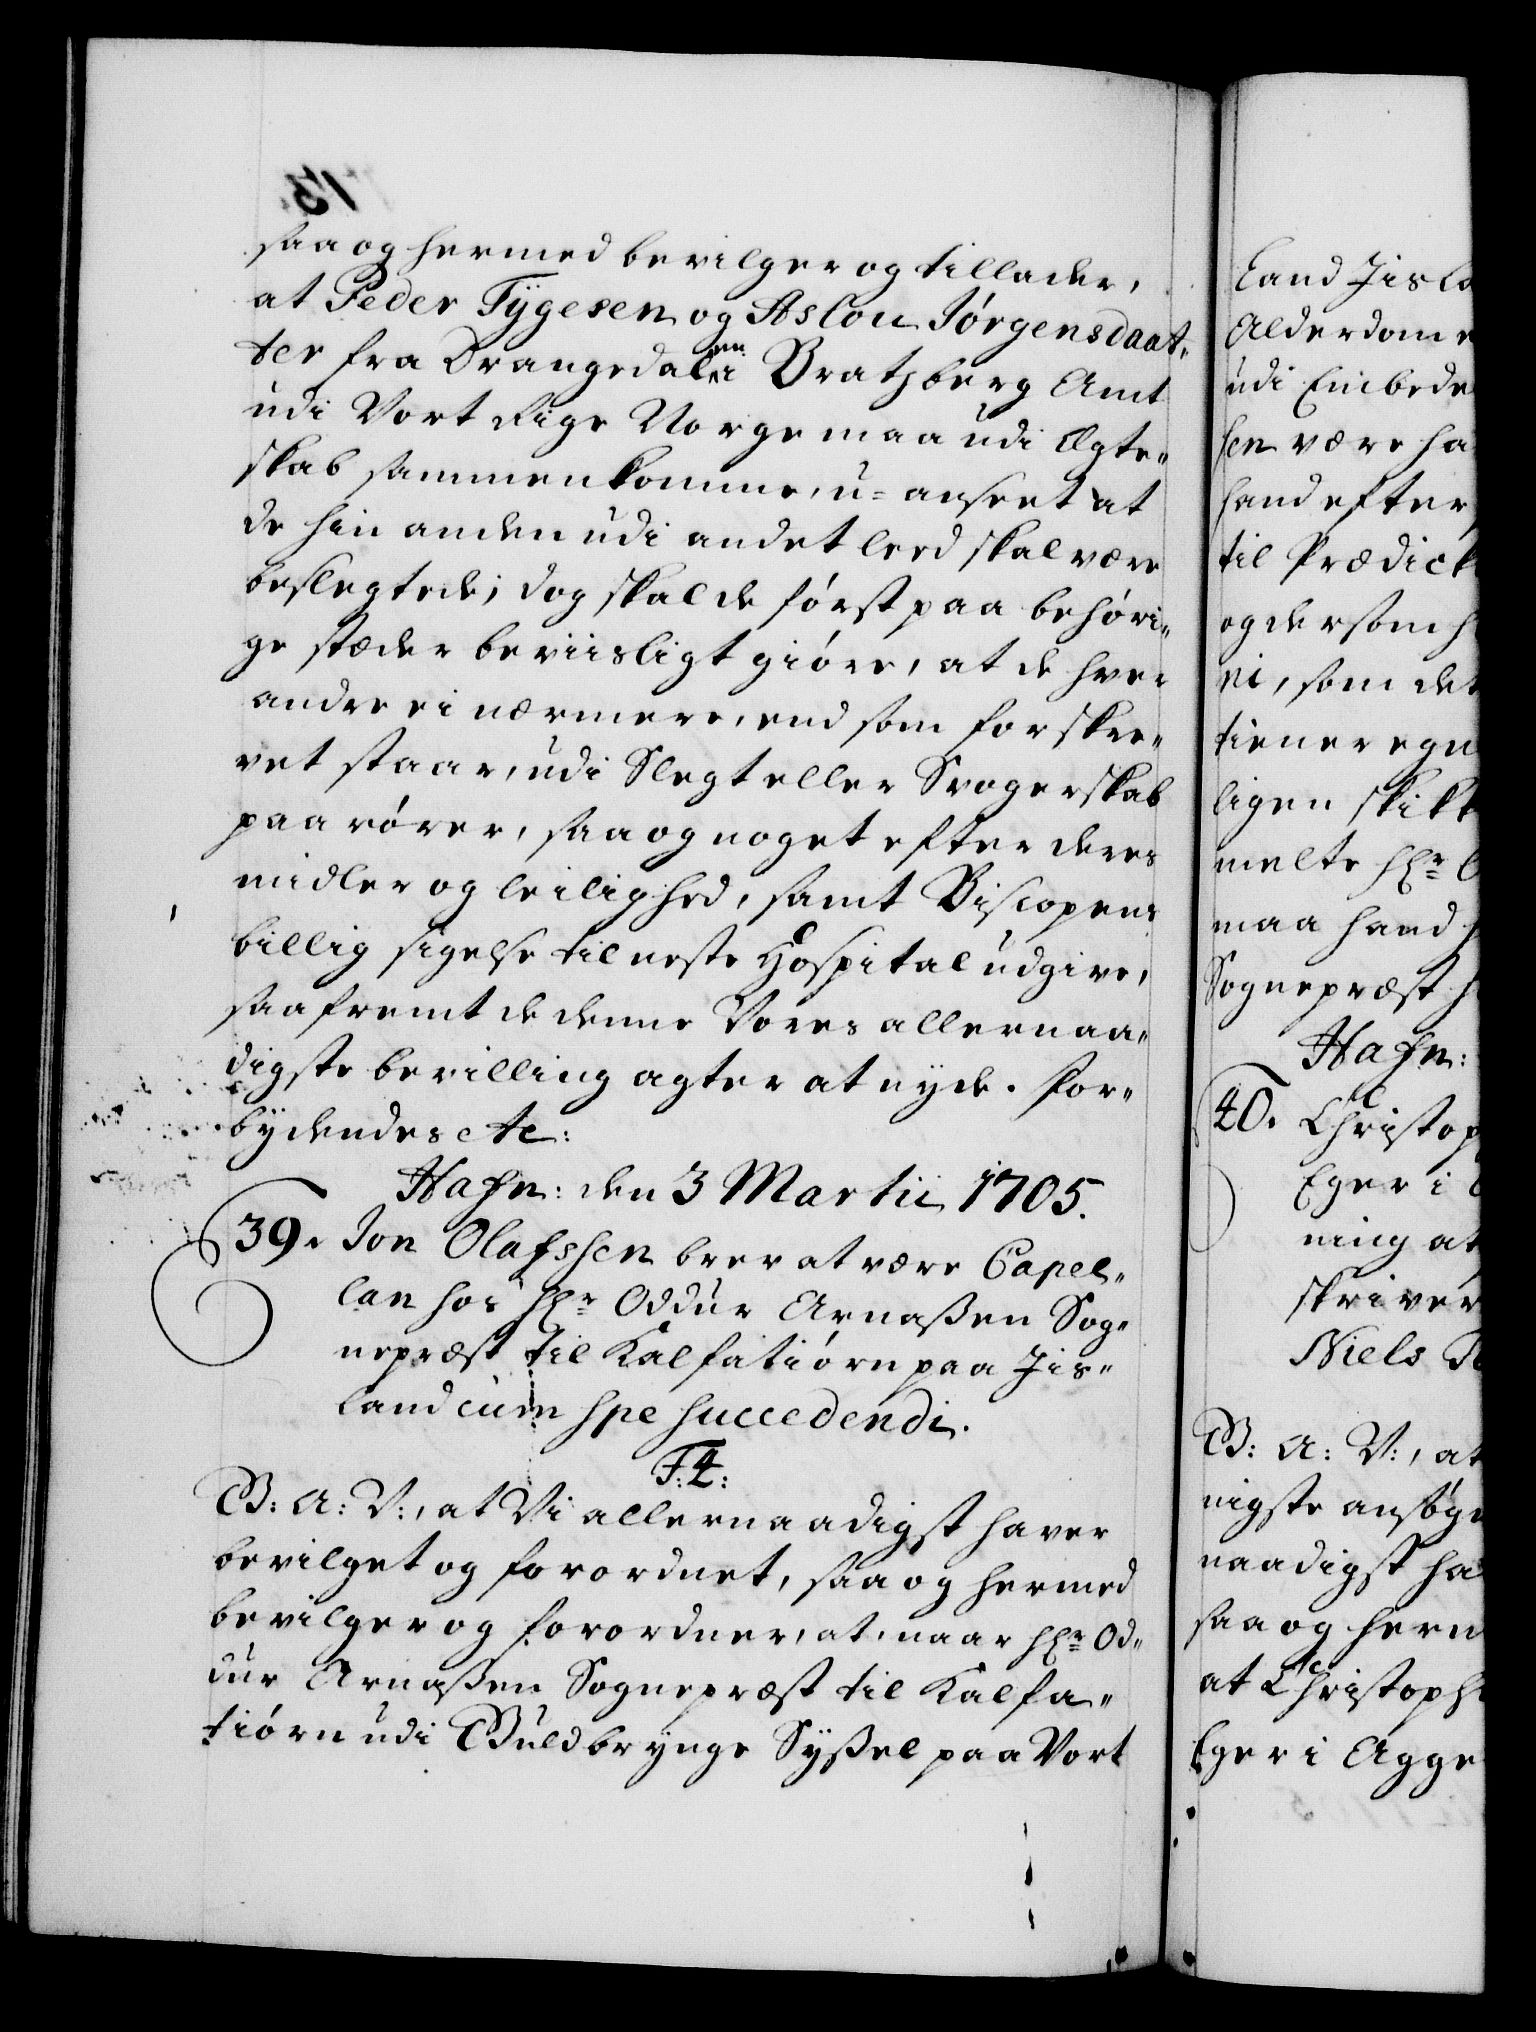 saa og hermed bevilger og tillader,
at Peder Tÿgesen og Aslou Jørgensdaat„
ter fra Drangedalen i Bratsberg Amt
udi Vort Rige Norge maa udi Ægte„
skab sammenkomme, u=anseet at
de hin anden udi andet leed skal være
beslegtede; dog skal de først paa behøri„
ge stæder beviisligt giøre, at de hver
andre ei nærmere, end som forskre„
vet staar, udi Slegt eller Svogerskab
paarører, saa og noget efter deres
midler og leilighed, samt Biscopens
billig sigelse til neste Hospital udgive,
saafremt de denne Vores allernaa„
digste bevilling agter at nyde. For„
bydendes etc:
Hafn: den 3 Martii 1705.
39. Jon Olafssen brev at være Capel„
lan hos Hr Oddur Arnaßen Sog„
nepræst til Kalfatiørn paa Jis„
land cum spe succedendi.
F: 4:
G: A: V:, at Vi allernaadigst haver
bevilget og forordnet, saa og hermed
bevilger og forordner, at, naar Hr Od„
dur Arnaßen Sognepræst til Kalfa„
tiørn udi Guldbrynge Syßel paa Vort
Land Jisla
Alderdom
udi Embede
sen være ha
hand efter
til Prædick
og dersom
ei, som det
tiener egn
ligen skikk
melte Hr
maa hand
Sognepræst
Hafn:
40. Christop
Eger i
ning at
skriver
Niels
G: A: V:, at
nigste ansøg
naadigst ha
saa og herm
at Christoph
Eger i Agge